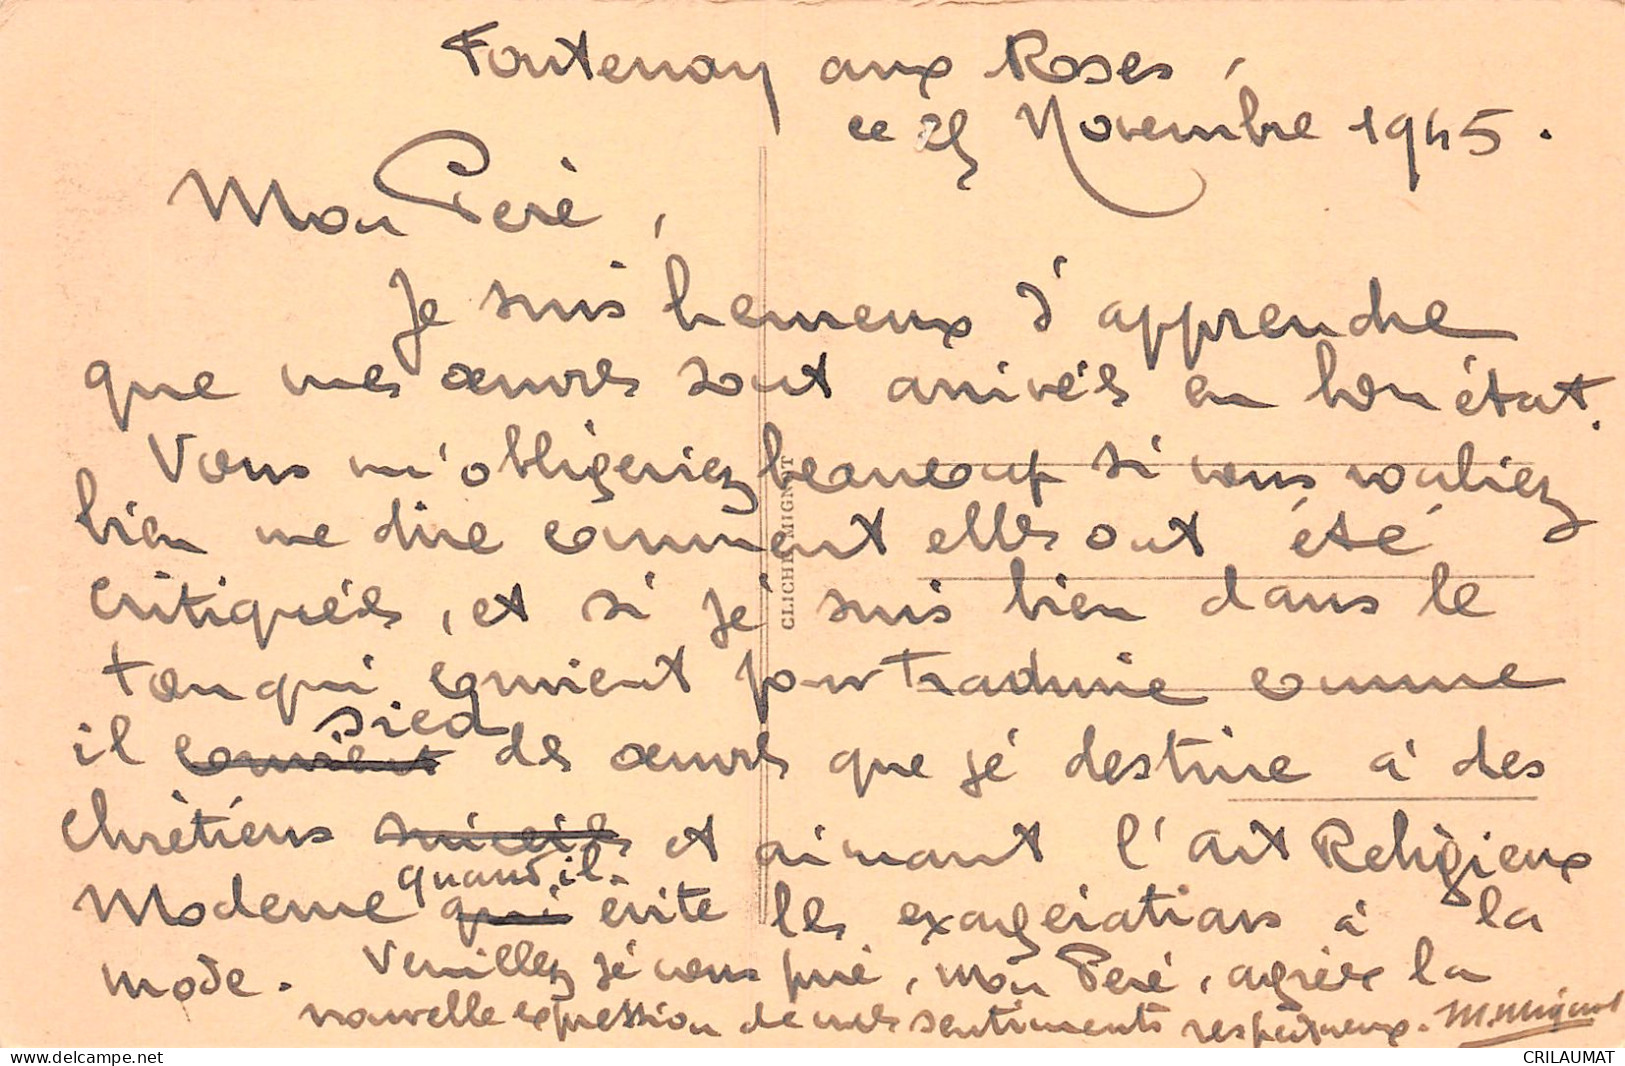 Fontenay aux Roses,
ce 25 Novembre 1945.
Mon Père,
Je suis heureux d'apprendre
que mes œuvres sont arrivées en bon état.
Vous m'obligeriez beaucoup si vous vouliez
bien me dire comment elles ont été
critiquées, et si je suis bien dans le
ton qui convient pour traduire comme
il convient sied des œuvres que je destine à des
chrétiens et aimant l'art Religieux
Moderne qui quand il évite les exagérations à la
mode. Veuillez je vous prie, mon Père, agréer la
nouvelle expression de mes sentiments respectueux. M. Mignot
CLICHÉ MIGNOT
CRILAUMAT